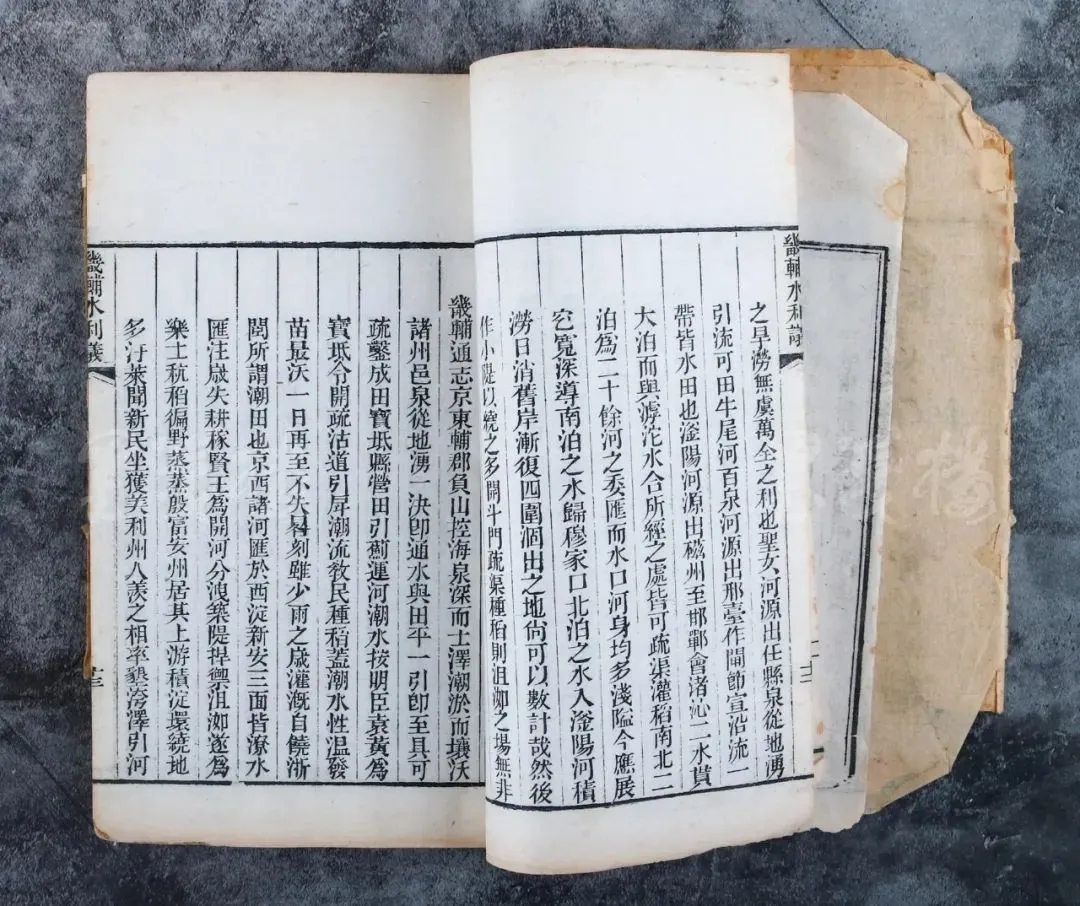 畿輔水利議
之旱澇無虞萬全之利也聖女河源出任縣泉從地湧
引流可田牛尾河百泉河源出邢臺作閘節宣沿流一
帶皆水田也滏陽河源出磁州至邯鄲會渚沁二水貫
大泊而與滹沱水合所經之處皆可疏渠灌稻南北二
泊為二十餘河之委匯而水口河身均多淺隘今應展
空寬深導南泊之水歸穆家口北泊之水入滏陽河積
澇日消舊岸漸復四圍涸出之地尙可以數計哉然後
作小隄以繞之多開斗門疏渠種稻則沮洳之場無非
畿輔通志京東輔郡負山控海泉深而土澤潮淤而壤沃
諸州邑泉從地湧一決卽通水與田平一引卽至具可
疏鑿成田寶坻縣營田引薊運河潮水按明臣袁黃為
寶坻令開疏沽道引戽潮流敎民種稻蓋潮水性温發
苗最沃一日再至不失晷刻雖少雨之歲灌漑自饒浙
閩所謂潮田也京西諸河匯於西淀新安三面皆潦水
匯注歲失耕稼賢王為開河分洩築隄捍禦沮洳遂為
樂土秔稻徧野蒸蒸殷富安州居其上游積淀環繞地
多汙萊聞新民坐獲美利州人羨之相率墾洿澤引河
畿輔水利議